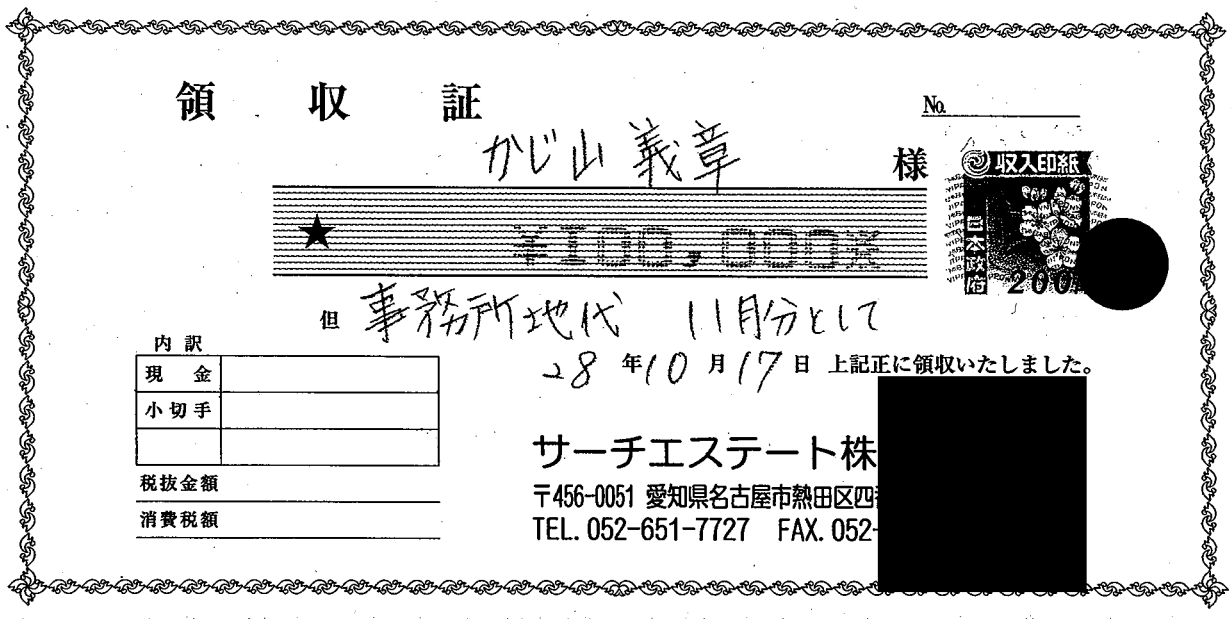 領収証
No.
かじ山 義章 様
収入印紙
日本政府
200
★ ¥100,000※
但 事務所地代 11月分として
28年10月17日 上記正に領収いたしました。
内訳
現金
小切手
税抜金額
消費税額
サーチエステート株
〒456-0051 愛知県名古屋市熱田区四
TEL. 052-651-7727 FAX. 052-